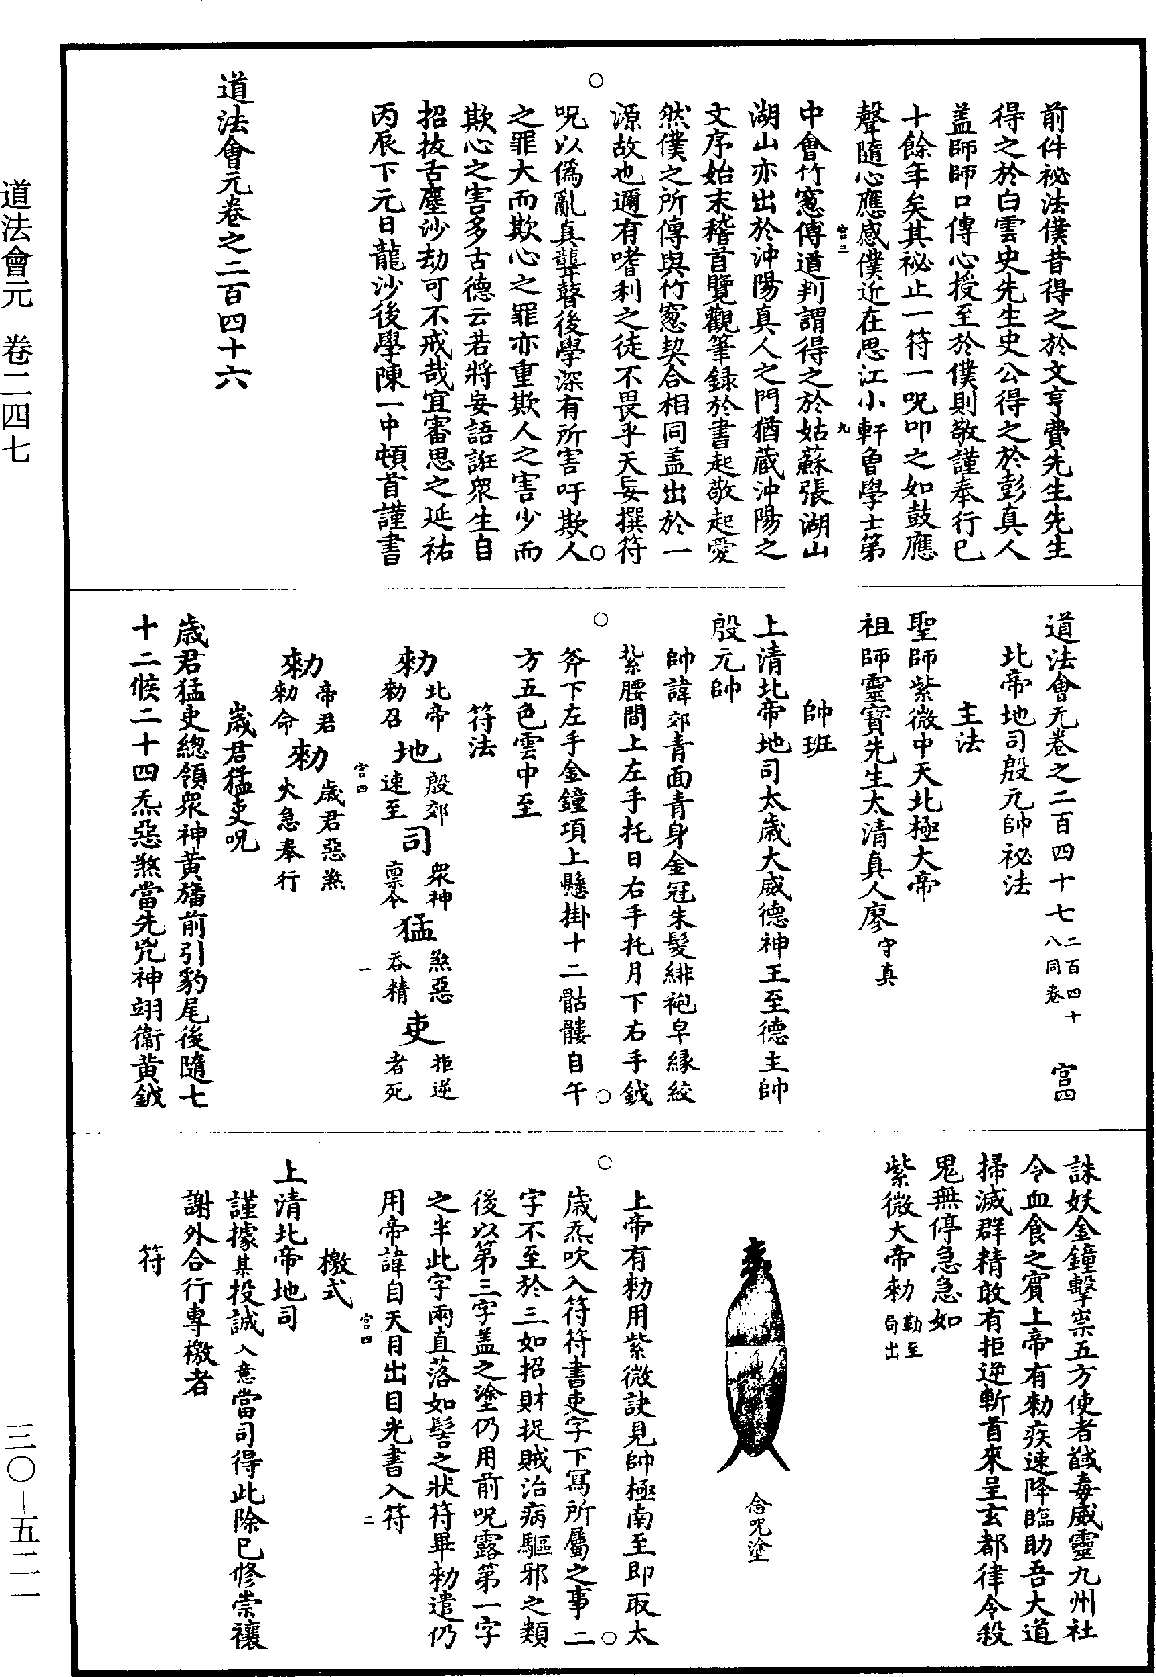 前件祕法僕昔得之於文亨費先生先生
得之於白雲史先生史公得之於彭真人
蓋師師口傳心授至於僕則敬謹奉行已
十餘年矣其祕止一符一呪叩之如鼓應
聲隨心應感僕近在思江小軒魯學士第
宮三
九
中會竹窻傅道判謂得之於姑蘇張湖山
湖山亦出於沖陽真人之門猶蔵沖陽之
文序始末稽首覽觀筆録於書起敬起愛
然僕之所傳與竹窻契合相同蓋出於一
源故也邇有嗜利之徒不畏乎天妄撰符
呪以偽亂真聾瞽後學深有所害吁欺人
之罪大而欺心之罪亦重欺人之害少而
欺心之害多古德云若將妄語誑衆生自
招拔舌塵沙劫可不戒哉宜審思之延祐
丙辰下元日龍沙後學陳一中頓首謹書
道法會元卷之二百四十六
道法會元卷之二百四十七
二百四十
八同卷
宫四
北帝地司殷元帥祕法
主法
聖師紫微中天北極大帝
祖師靈寶先生太清真人廖守真
帥班
上清北帝地司太歲大威德神王至德主帥
殷元帥
帥諱郊青面青身金冠朱髮緋袍皁縁絞
紮腰間上左手托日右手托月下右手鉞
斧下左手金鐘項上懸掛十二骷髏自午
方五色雲中至
符法
勑
北帝
勑召
地
殷郊
速至
司
衆神
稟令
猛
煞惡
吞精
吏
拒逆
者死
宫四
一
勑
帝君
勑命
勑
歲君惡煞
火急奉行
歲君猛吏呪
歲君猛吏總領衆神黃旛前引豹尾後隨七
十二候二十四炁惡煞當先兇神翊衞黃鉞
誅妖金鐘擊祟五方使者馘毒威靈九州社
令血食之賓上帝有勑疾速降臨助吾大道
掃滅群精敢有拒逆斬首來呈玄都律令殺
鬼無停急急如
紫微大帝勑
勒至
局出
念呪塗
上帝有勑用紫微訣見帥極南至即取太
歲炁吹入符符書吏字下寫所屬之事二
字不至於三如招財捉賊治病驅邪之類
後以第三字蓋之塗仍用前呪露第一字
之半此字兩直落如髻之狀符畢勑遣仍
用帝諱自天目出目光書入符
宫四
二
檄式
上清北帝地司
謹據某投誠入意當司得此除已修崇禳
謝外合行專檄者
符
道法會元　卷二四七
三〇—五二一